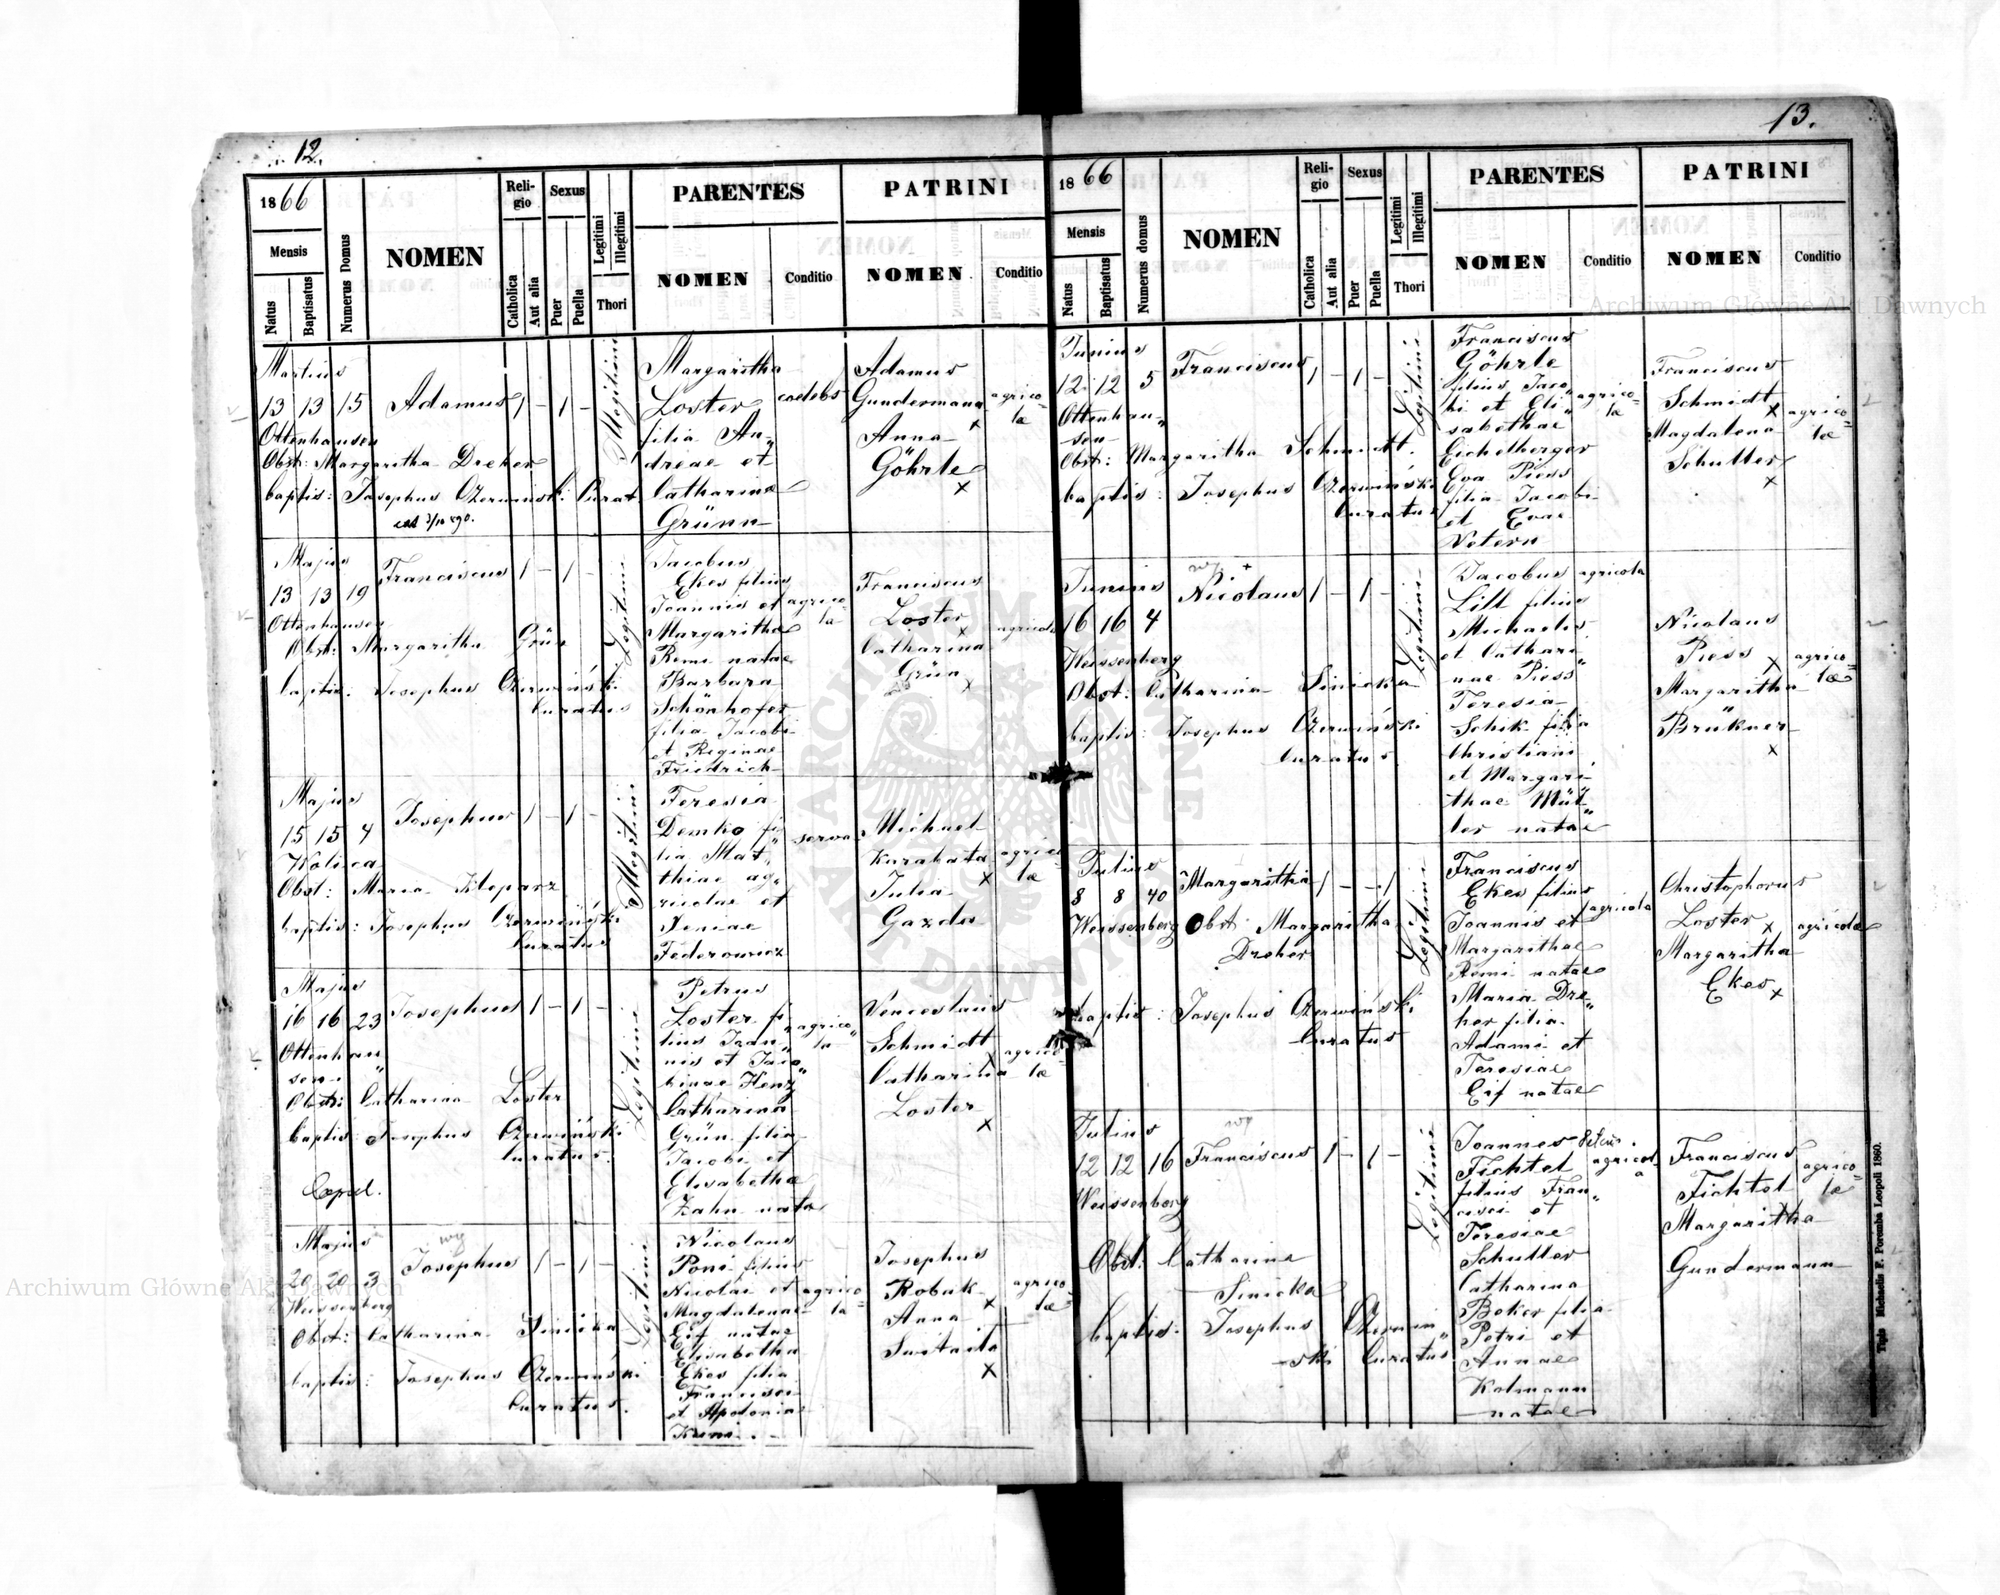 12.
1866
Mensis
Natus
Baptisatus
Numerus Domus
NOMEN
Reli-
gio
Catholica
Aut alia
Sexus
Puer
Puella
Legitimi
Illegitimi
Thori
PARENTES
NOMEN
Conditio
PATRINI
NOMEN
Conditio
Martius
13 13 15 Adamus 1 - 1 -
Ottenhausen
Obst: Margaritha Dreher
baptis: Josephus Czerwiński Curat
Illegitimi
Margaritha
Loster
filia An„
dreae et
Catharina
Grünn
caelebs
Adamus
Gundermann
x
Anna
Göhrle
x
agrico-
lae
Majus
13 13 19 Franciscus 1 - 1 -
Ottenhausen
Obst: Margaritha Grün
baptis: Josephus Czerwiński
Curatus
Legitimi
Jacobus
Ekes filius
Joannis et
Margaritha
Remi natae
Barbara
Schönhofer
filia Jacobi
et Reginae
Friedrich
agrico-
la
Franciscus
Loster
x
Catharina
Grün
x
agricolae
Majus
15 15 4 Josephus 1 - 1 -
Wolica
Obst: Maria Kloparz
baptis: Josephus Czerwiński
Curatus
Illegitimi
Teresia
Demko fi„
lia Mat„
thiae ag„
ricolae et
Xeniae
Federowicz
serva
Michael
Karabata
x
Julia
Gazda
agrico-
lae
Majus
16 16 23 Josephus 1 - 1 -
Ottenhau„
sen
Obst: Catharina Loster
baptis: Josephus Czerwiński
Curatus.
Copul.
Legitimi
Petrus
Loster fi„
lius Joan„
nis et Jaco„
binae Henz
Catharina
Grün filia
Jacobi et
Elisabetha
Zahn nata
agrico„
la
Venceslaus
Schmidt
x
Catharina
Loster
x
agrico-
lae
Majus
wyj
20 20 3 Josephus 1 - 1 -
Weissenberg
Obst: Catharina Sinicka
baptis: Josephus Czerwiński
Curatus.
Legitimi
Nicolaus
Poni filius
Nicolai et
Magdalenae
Eif natae
Elisabetha
Ekes filia
Francisci
et Apolonia
agrico-
la
Josephus
Robak
x
Anna
x
agrico-
lae
13.
1866
Mensis
Natus
Baptisatus
Numerus domus
NOMEN
Reli-
gio
Catholica
Aut alia
Sexus
Puer
Puella
Legitimi
Illegitimi
Thori
PARENTES
NOMEN
Conditio
PATRINI
NOMEN
Conditio
Junius
12 12 5 Franciscus 1 - 1 -
Ottenhau„
sen
Obst: Margaritha Schmidt.
baptis: Josephus Czerwiński
Curatus
Legitimi
Franciscus
Göhrle
filius Jaco„
bi et Eli„
sabethae
Eichelberger
Eva Piess
filia Jacobi
et Evae
Vetern
agrico-
la
Franciscus
Schmidt
x
Magdalena
Schutter
x
agrico-
lae
Junius
16 16 4 Nicolaus 1 - 1 -
Weissenberg
Obst: Catharina Sinicka
baptis: Josephus Czerwiński
Curatus
Legitimi
Jacobus
Lill filius
Michaelis
et Cathari„
nae Piess
Teresia
Schik filia
Christiani
et Margari„
thae Mül„
ler natae
agricola
Nicolaus
Piess
x
Margaritha
Brükner
x
agrico-
lae
Julius
8 8 40 Margaritha 1 - - 1
Weissenberg Obst: Margaritha
Dreher
baptis: Josephus Czerwiński
Curatus
Legitimi
Franciscus
Ekes filius
Joannis et
Margarithae
Remi natae
Maria Dre„
her filia
Adami et
Teresiae
Eif natae
agricola
Christophorus
Loster
x
Margaritha
Ekes
x
agricolae
Julius
12 12 16 Franciscus 1 - 1 -
Weissenberg
Obst: Catharina
Sinicka
baptis: Josephus Czerwin„
-ski Curatus
Legitimi
Joannes Petrus.
Fichtel
filius Fran„
cisci et
Teresiae
Schutter
Catharina
Beker filia
Petri et
Annae
Kolmann
natae
agricol-
a
Franciscus
Fichtel
Margaritha
Gundermann
agrico-
lae
Typis Michaelis F. Poremba Leopoli 1860.
Archiwum Główne Akt Dawnych
Archiwum Główne Akt Dawnych
ARCHIWUM GŁÓWNE AKT DAWNYCH